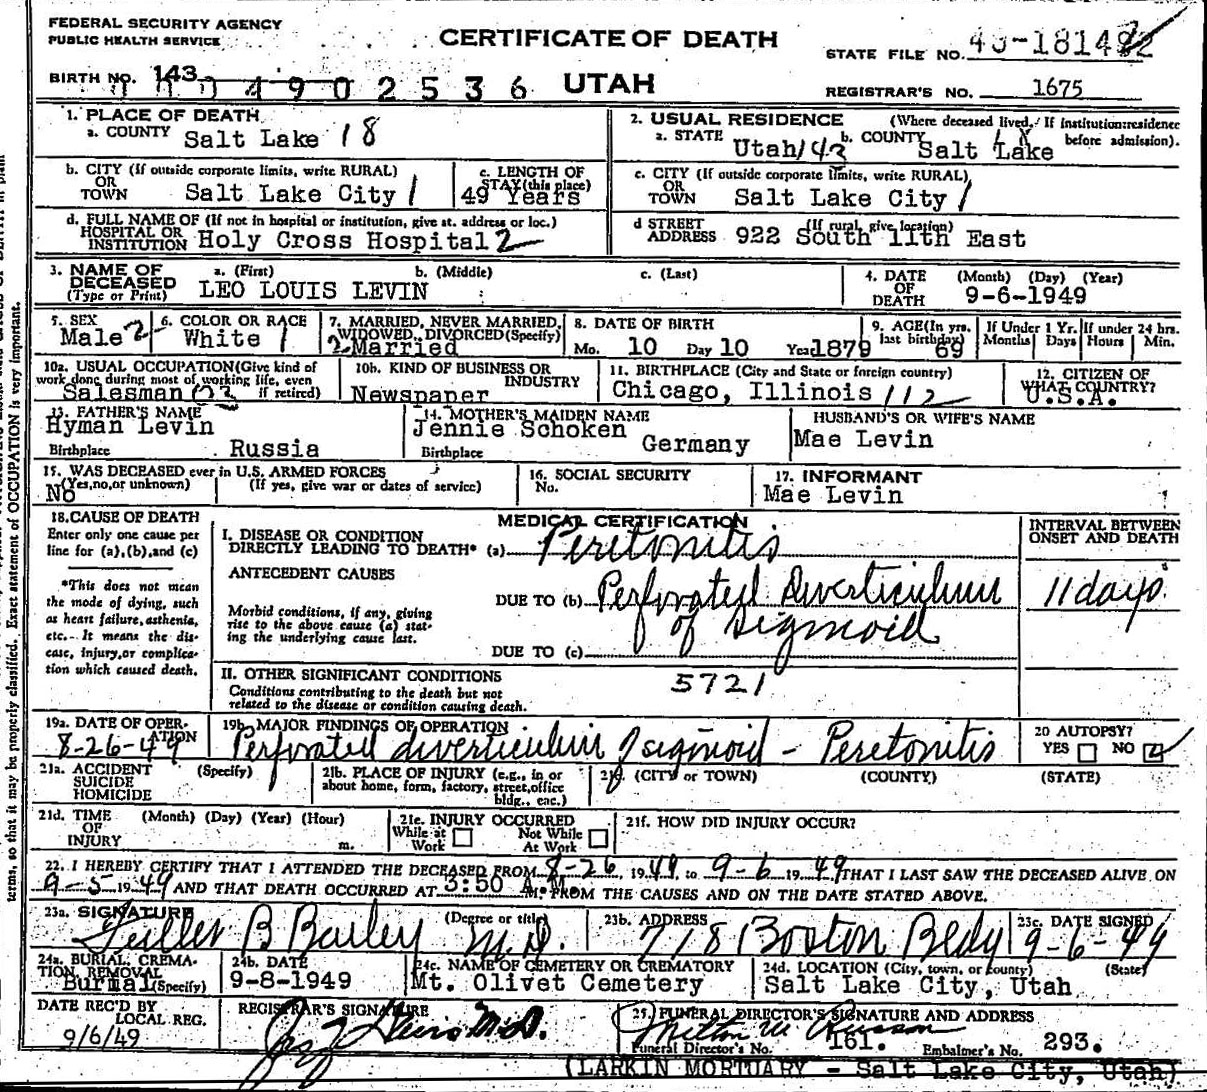 FEDERAL SECURITY AGENCY
PUBLIC HEALTH SERVICE
CERTIFICATE OF DEATH
STATE FILE NO.
BIRTH NO. 143
0004902536
UTAH
REGISTRAR'S NO. 1675
1. PLACE OF DEATH
a. COUNTY Salt Lake 18
2. USUAL RESIDENCE (Where deceased lived. If institution: residence before admission).
a. STATE Utah/43 b. COUNTY Salt Lake
b. CITY (If outside corporate limits, write RURAL)
OR
TOWN Salt Lake City 1
c. LENGTH OF
STAY (this place)
49 Years
c. CITY (If outside corporate limits, write RURAL)
OR
TOWN Salt Lake City 1
d. FULL NAME OF (If not in hospital or institution, give st. address or loc.)
HOSPITAL OR
INSTITUTION Holy Cross Hospital 2
d STREET (If rural, give location)
ADDRESS 922 South 11th East
3. NAME OF DECEASED (Type or Print)
a. (First) b. (Middle) c. (Last)
LEO LOUIS LEVIN
4. DATE OF DEATH (Month) (Day) (Year)
9-6-1949
5. SEX
Male 2
6. COLOR OR RACE
White 1
7. MARRIED, NEVER MARRIED, WIDOWED, DIVORCED (Specify)
2 Married
8. DATE OF BIRTH
Mo. 10 Day 10 Year 1879
9. AGE (In yrs. last birthday) 69
If Under 1 Yr. Months Days
If under 24 hrs. Hours Min.
10a. USUAL OCCUPATION (Give kind of work done during most of working life, even if retired)
Salesman
10b. KIND OF BUSINESS OR INDUSTRY
Newspaper
11. BIRTHPLACE (City and State or foreign country)
Chicago, Illinois 112
12. CITIZEN OF WHAT COUNTRY?
U.S.A.
13. FATHER'S NAME
Hyman Levin
Birthplace Russia
14. MOTHER'S MAIDEN NAME
Jennie Schoken
Birthplace Germany
HUSBAND'S OR WIFE'S NAME
Mae Levin
15. WAS DECEASED ever in U.S. ARMED FORCES
(Yes, no, or unknown) (If yes, give war or dates of service)
No
16. SOCIAL SECURITY
No.
17. INFORMANT
Mae Levin
18. CAUSE OF DEATH
Enter only one cause per
line for (a), (b), and (c)
*This does not mean
the mode of dying, such
as heart failure, asthenia,
etc. It means the dis-
ease, injury, or complica-
tion which caused death.
MEDICAL CERTIFICATION
I. DISEASE OR CONDITION
DIRECTLY LEADING TO DEATH* (a) Peretonitis
ANTECEDENT CAUSES
Morbid conditions, if any, giving
rise to the above cause (a) stat-
ing the underlying cause last.
DUE TO (b) Perforated diverticulum
of sigmoid
DUE TO (c)
INTERVAL BETWEEN
ONSET AND DEATH
11 days
II. OTHER SIGNIFICANT CONDITIONS
Conditions contributing to the death but not
related to the disease or condition causing death.
5721
19a. DATE OF OPER-
ATION
8-26-49
19b. MAJOR FINDINGS OF OPERATION
Perforated diverticulum of sigmoid - Peretonitis
20 AUTOPSY?
YES NO
21a. ACCIDENT (Specify)
SUICIDE
HOMICIDE
21b. PLACE OF INJURY (e.g., in or
about home, form, factory, street, office
bldg., enc.)
(CITY or TOWN) (COUNTY) (STATE)
21d. TIME (Month) (Day) (Year) (Hour)
OF
INJURY m.
21e. INJURY OCCURRED
While at Work Not While At Work
21f. HOW DID INJURY OCCUR?
22. I HEREBY CERTIFY THAT I ATTENDED THE DECEASED FROM 8-26, 1949, to 9-6 1949 THAT I LAST SAW THE DECEASED ALIVE ON
9-5 1949 AND THAT DEATH OCCURRED AT 3:50 A.M. FROM THE CAUSES AND ON THE DATE STATED ABOVE.
23a. SIGNATURE (Degree or title)
Fuller B Bailey M.D.
23b. ADDRESS
718 Boston Bldg
23c. DATE SIGNED
9-6-49
24a. BURIAL, CREMA-
TION, REMOVAL
Burial (Specify)
24b. DATE
9-8-1949
24c. NAME OF CEMETERY OR CREMATORY
Mt. Olivet Cemetery
24d. LOCATION (City, town, or county) (State)
Salt Lake City, Utah
DATE REC'D BY
LOCAL REG.
9/6/49
REGISTRAR'S SIGNATURE
25. FUNERAL DIRECTOR'S SIGNATURE AND ADDRESS
Funeral Director's No. 161. Embalmer's No. 293.
(LARKIN MORTUARY - Salt Lake City, Utah)
terms, so that it may be properly classified. Exact statement of OCCUPATION is very important.